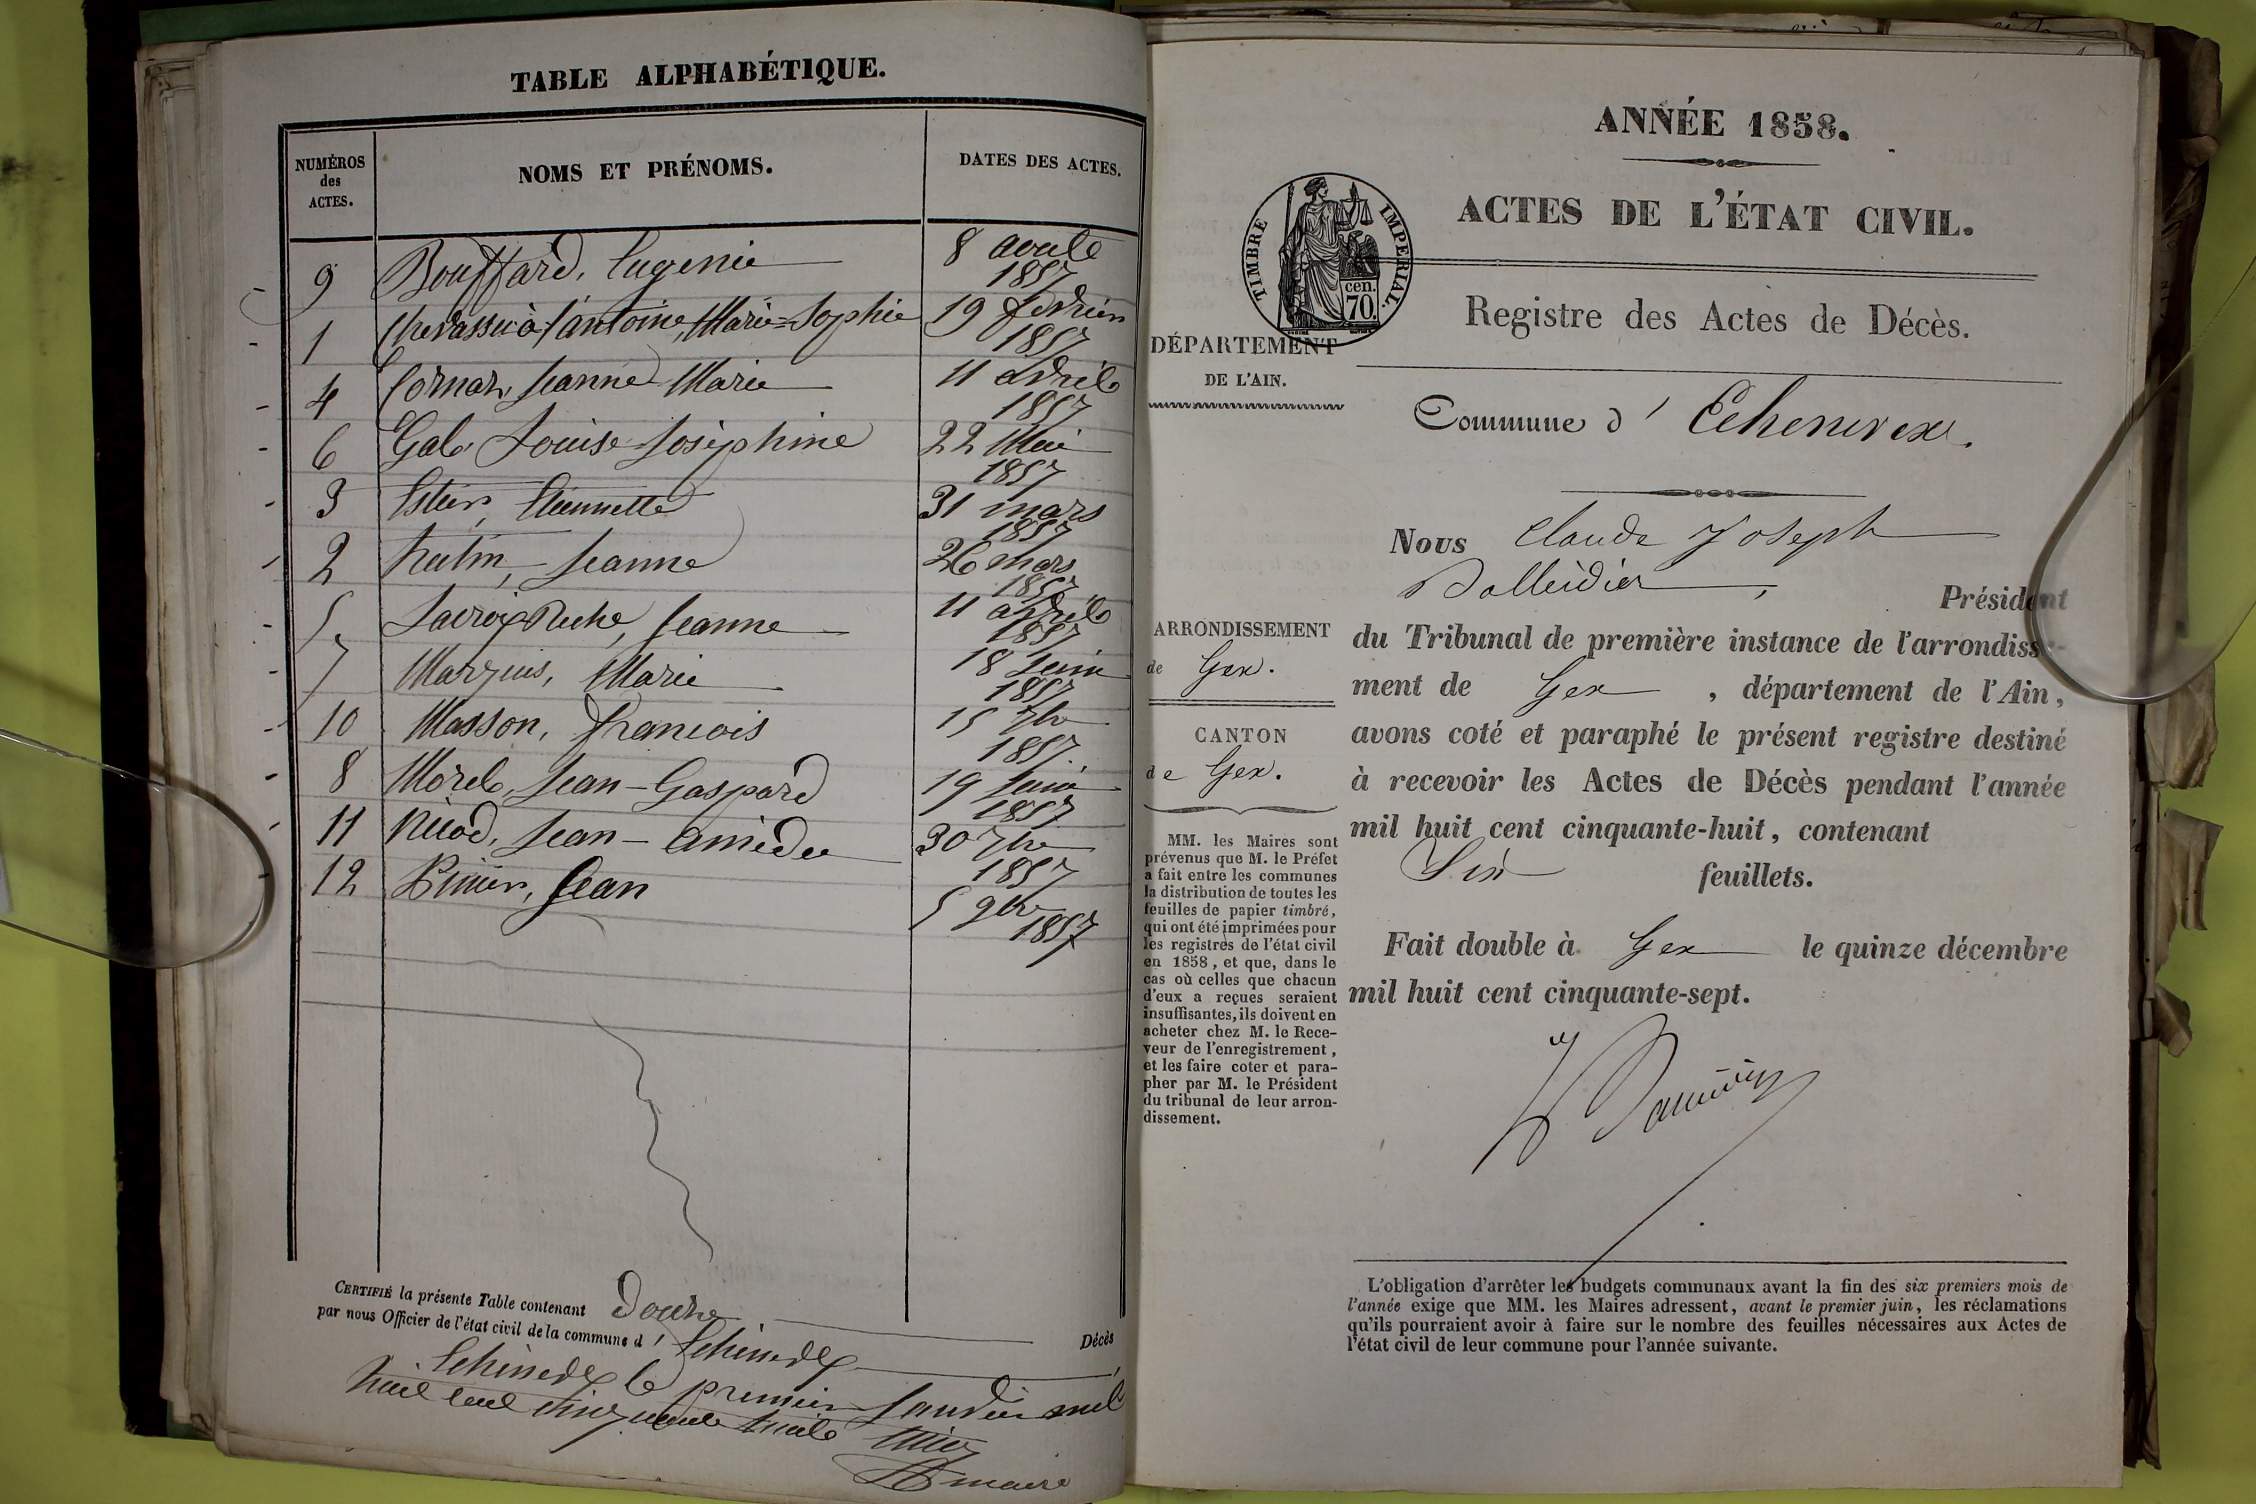 TABLE ALPHABÉTIQUE.
NUMÉROS des ACTES.
NOMS ET PRÉNOMS.
DATES DES ACTES.
9 Bouffard, Eugenie 8 août 1857
1 Chevassu à l'antoine, Marie=Sophie 19 fevrier 1857
4 Cornan, Jeanne Marie 11 avril 1857
6 Gab Louise Joséphine 22 Mai 1857
3 Etiennette 31 mars 1857
2 Jeanne 26 mars 1857
5 Lacroix Jeanne 11 avril 1857
7 Marquis, Marie 18 Juin 1857
10 Masson, francois 15 7bre 1857.
8 Morel, Jean-Gaspard 19 Juin 1857
11 Nicod, Jean-amédée 30 7bre 1857
12 Jean 5 9bre 1857
CERTIFIÉ la présente Table contenant Douze Décès
par nous Officier de l'état civil de la commune d' Echenevex
Echenevex le premier Janvier mil
huit cent cinquante huit
maire
ANNÉE 1858.
ACTES DE L'ÉTAT CIVIL.
TIMBRE IMPERIAL.
70 cen.
Registre des Actes de Décès.
DÉPARTEMENT
DE L'AIN.
Commune d' Echenevex.
ARRONDISSEMENT
de Gex.
CANTON
de Gex.
MM. les Maires sont
prévenus que M. le Préfet
a fait entre les communes
la distribution de toutes les
feuilles de papier timbré,
qui ont été imprimées pour
les registres de l'état civil
en 1858, et que, dans le
cas où celles que chacun
d'eux a reçues seraient
insuffisantes, ils doivent en
acheter chez M. le Rece-
veur de l'enregistrement,
et les faire coter et para-
pher par M. le Président
du tribunal de leur arron-
dissement.
Nous Claude Joseph
Président
du Tribunal de première instance de l'arrondisse-
ment de Gex, département de l'Ain,
avons coté et paraphé le présent registre destiné
à recevoir les Actes de Décès pendant l'année
mil huit cent cinquante-huit, contenant
Six feuillets.
Fait double à Gex le quinze décembre
mil huit cent cinquante-sept.
L'obligation d'arrêter les budgets communaux avant la fin des six premiers mois de
l'année exige que MM. les Maires adressent, avant le premier juin, les réclamations
qu'ils pourraient avoir à faire sur le nombre des feuilles nécessaires aux Actes de
l'état civil de leur commune pour l'année suivante.